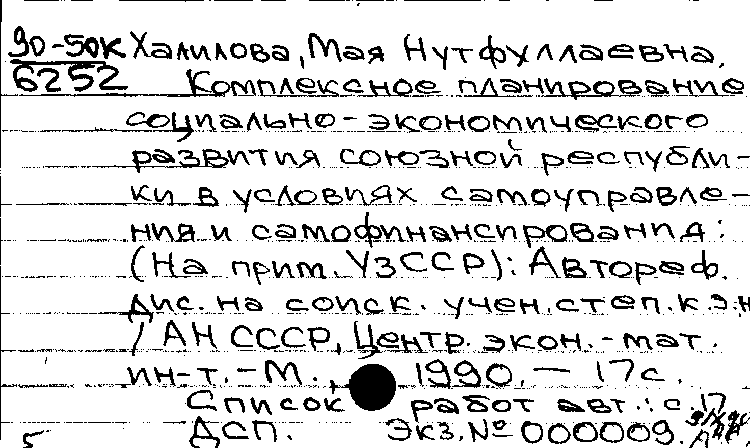 90-50к Халилова, Мая Нутфуллаевна.
6252 Комплексное планирование
социально-экономического
развития союзной республи-
ки в условиях самоуправле-
ния и самофинансирования:
(На прим. УзССР): Автореф.
дис. на соиск. учен. степ. к.э.н
/ АН СССР, Центр. экон.-мат.
ин-т. - М., 1990. - 17с.
Список работ авт.: с.17
5 ДСП. Экз. № 000009.